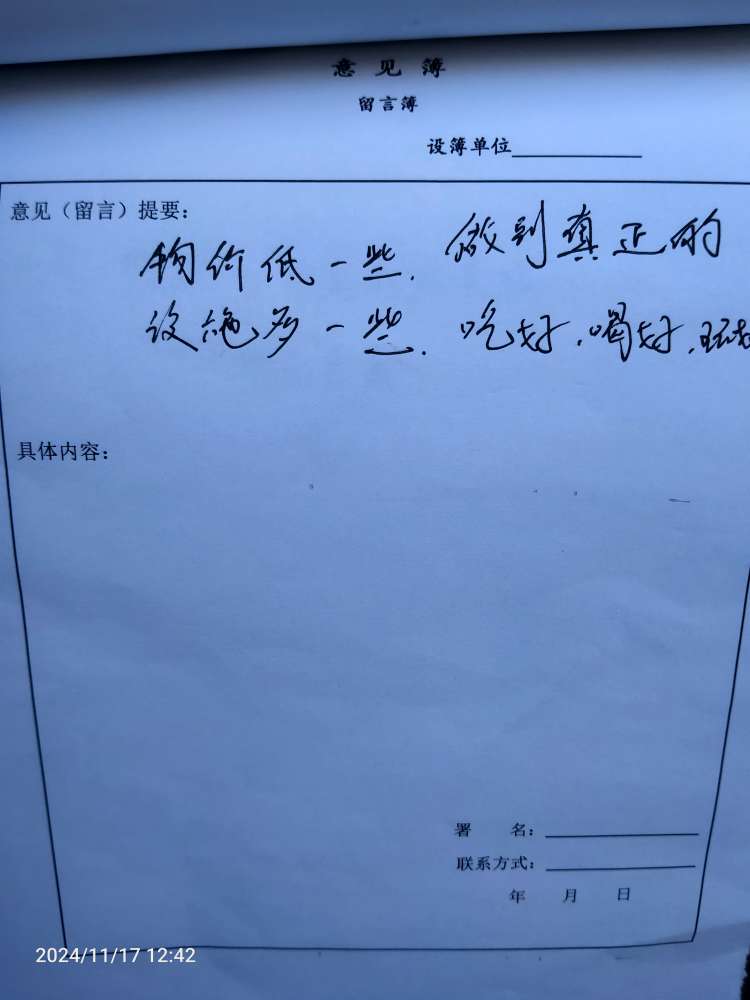 意见簿
留言簿
设簿单位
意见（留言）提要：
物价低一些. 做到真正的
设施多一些. 吃好.喝好.玩
具体内容：
署 名：
联系方式：
年 月 日
2024/11/17 12:42